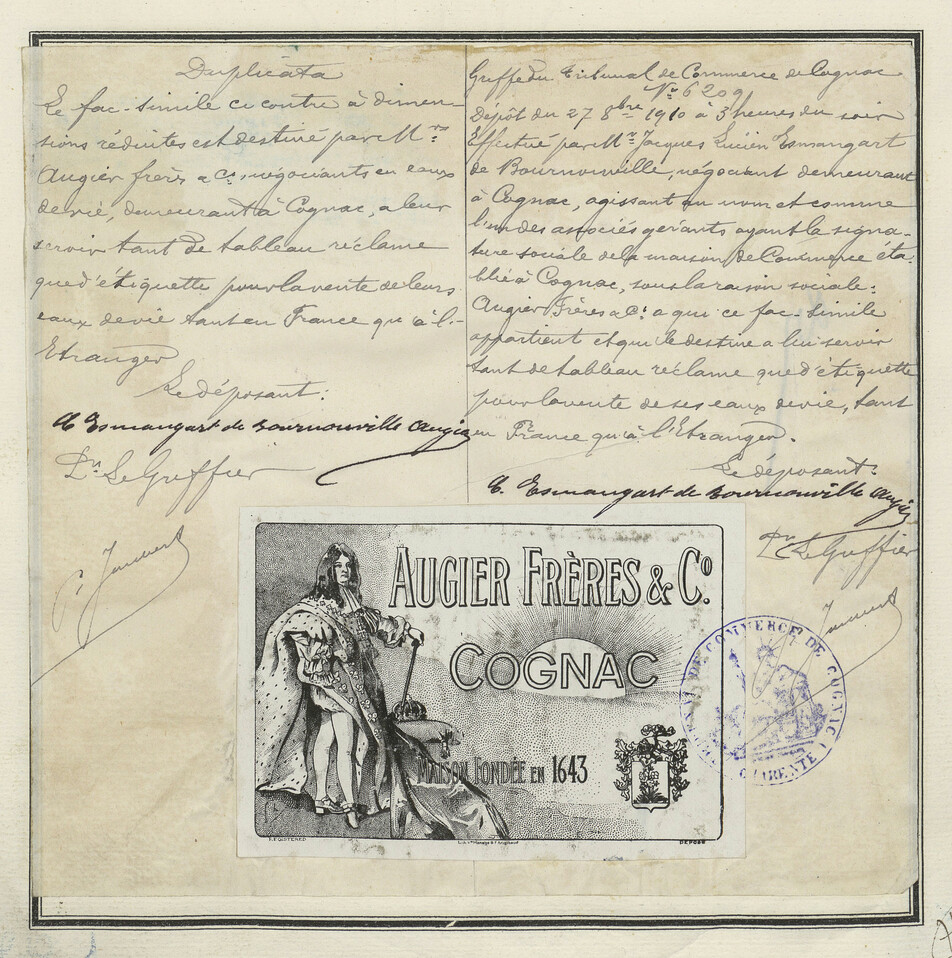 Duplicata
Le fac-simile ci contre à dimen-
sions réduites est destiné par Mrs
Augier frères & Cie, négociants en eaux
de vie, demeurant à Cognac, a leur
servir tant de tableau réclame
que d'étiquette pour la vente de leurs
eaux de vie tant en France qu'à l'-
Etranger
Le déposant:
E. Esmangart de Bournonville Augier
Dr Le Greffier
Greffe du Tribunal de Commerce de Cognac
No 6209
Dépôt du 27 8bre 1910 à 3 heures du soir
Effectué par Mr Jacques Lucien Esmangart
de Bournonville, négociant demeurant
à Cognac, agissant au nom et comme
l'un des associés gérants ayant la signa-
ture sociale de la maison de Commerce éta-
blie à Cognac, sous la raison sociale:
Augier Frères & Cie a qui ce fac-simile
appartient et qui le destine a lui servir
tant de tableau réclame que d'étiquette
pour la vente de ses eaux de vie, tant
en France qu'à l'Etranger.
Le déposant:
E. Esmangart de Bournonville Augier
Le Greffier
AUGIER FRÈRES & Co.
COGNAC
MAISON FONDÉE EN 1643
DÉPOSÉ
DE COMMERCE DE COGNAC
(CHARENTE)